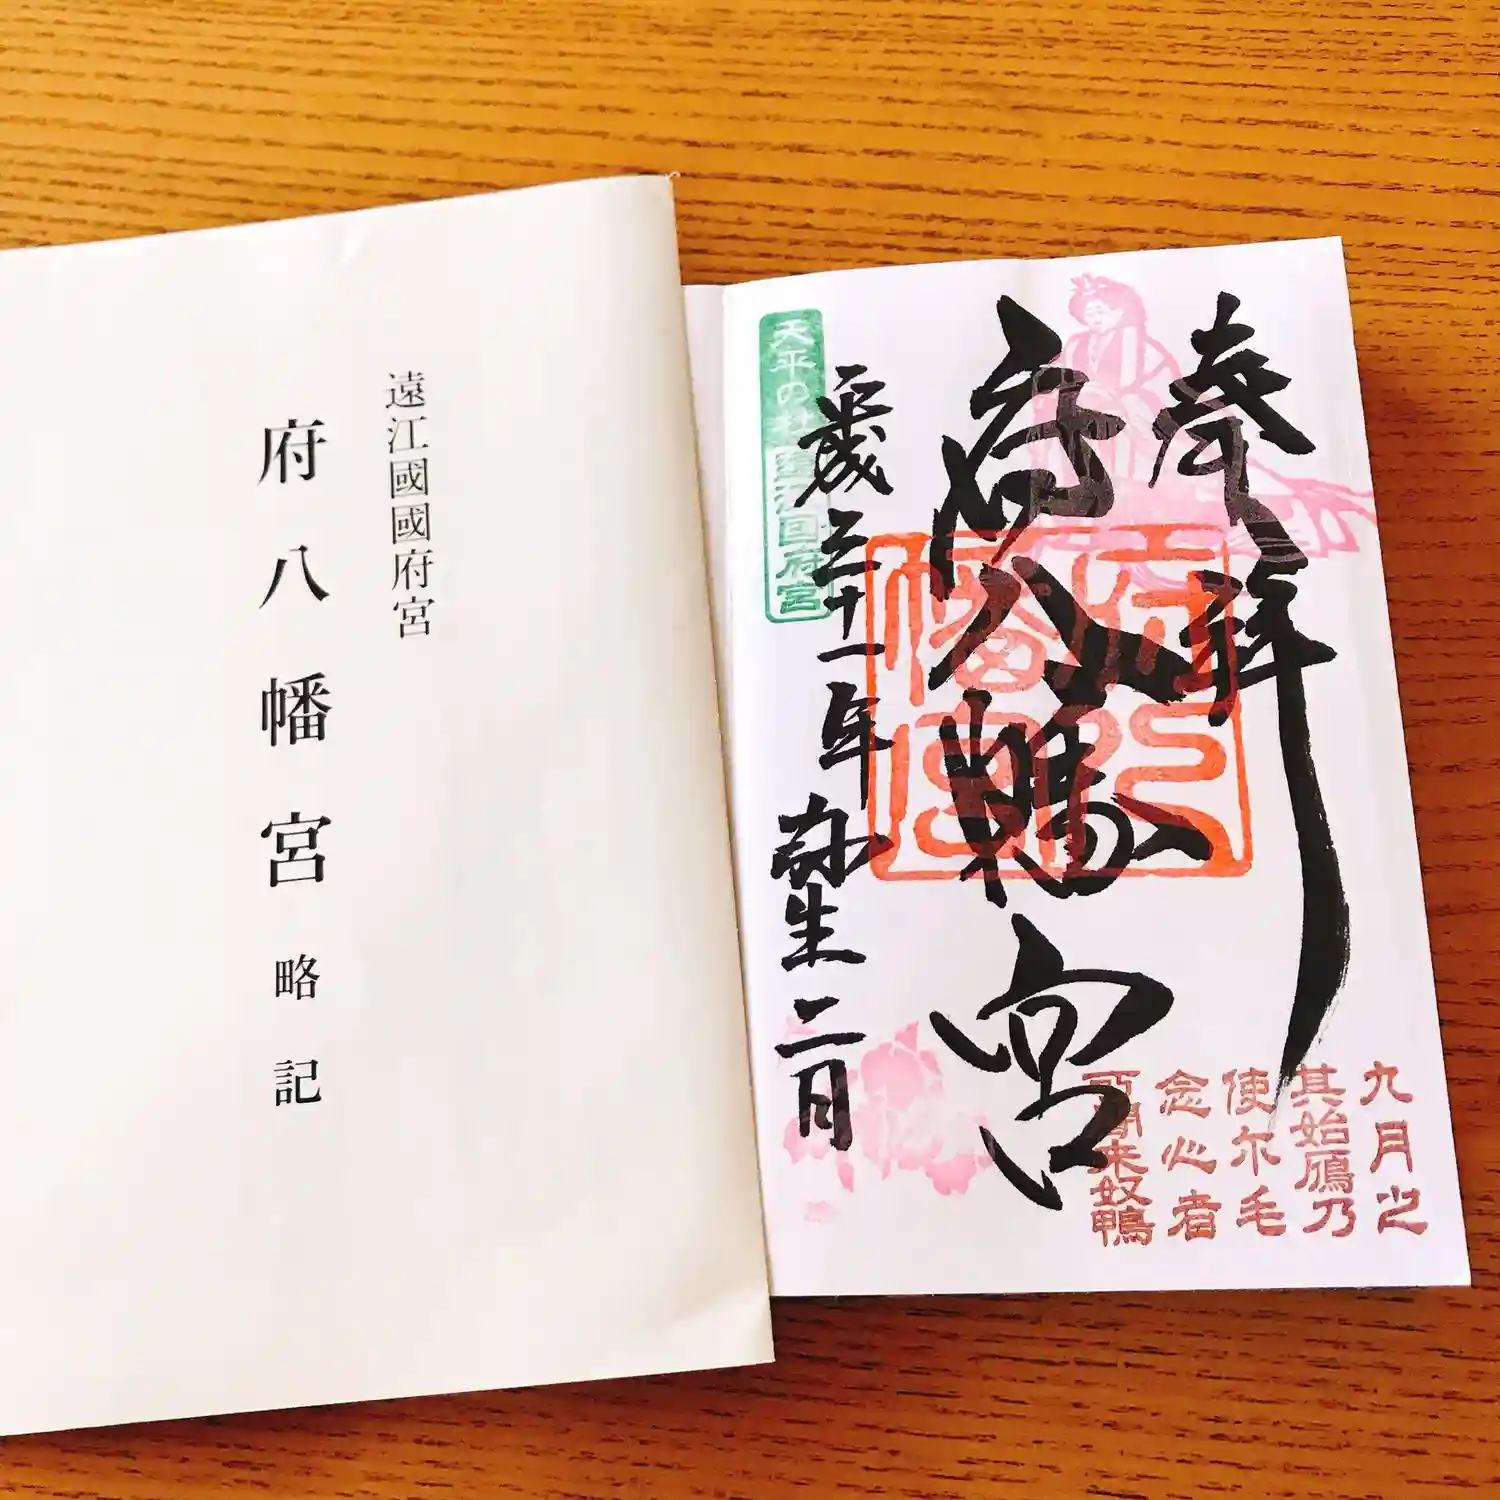 遠江國國府宮
府八幡宮略記
奉拝
府八幡宮
府八
幡宮
平成三十一年弥生二日
天平の杜 遠江国府宮
九月之
其始鴈乃
使尓毛
念心者
所聞来奴鴨